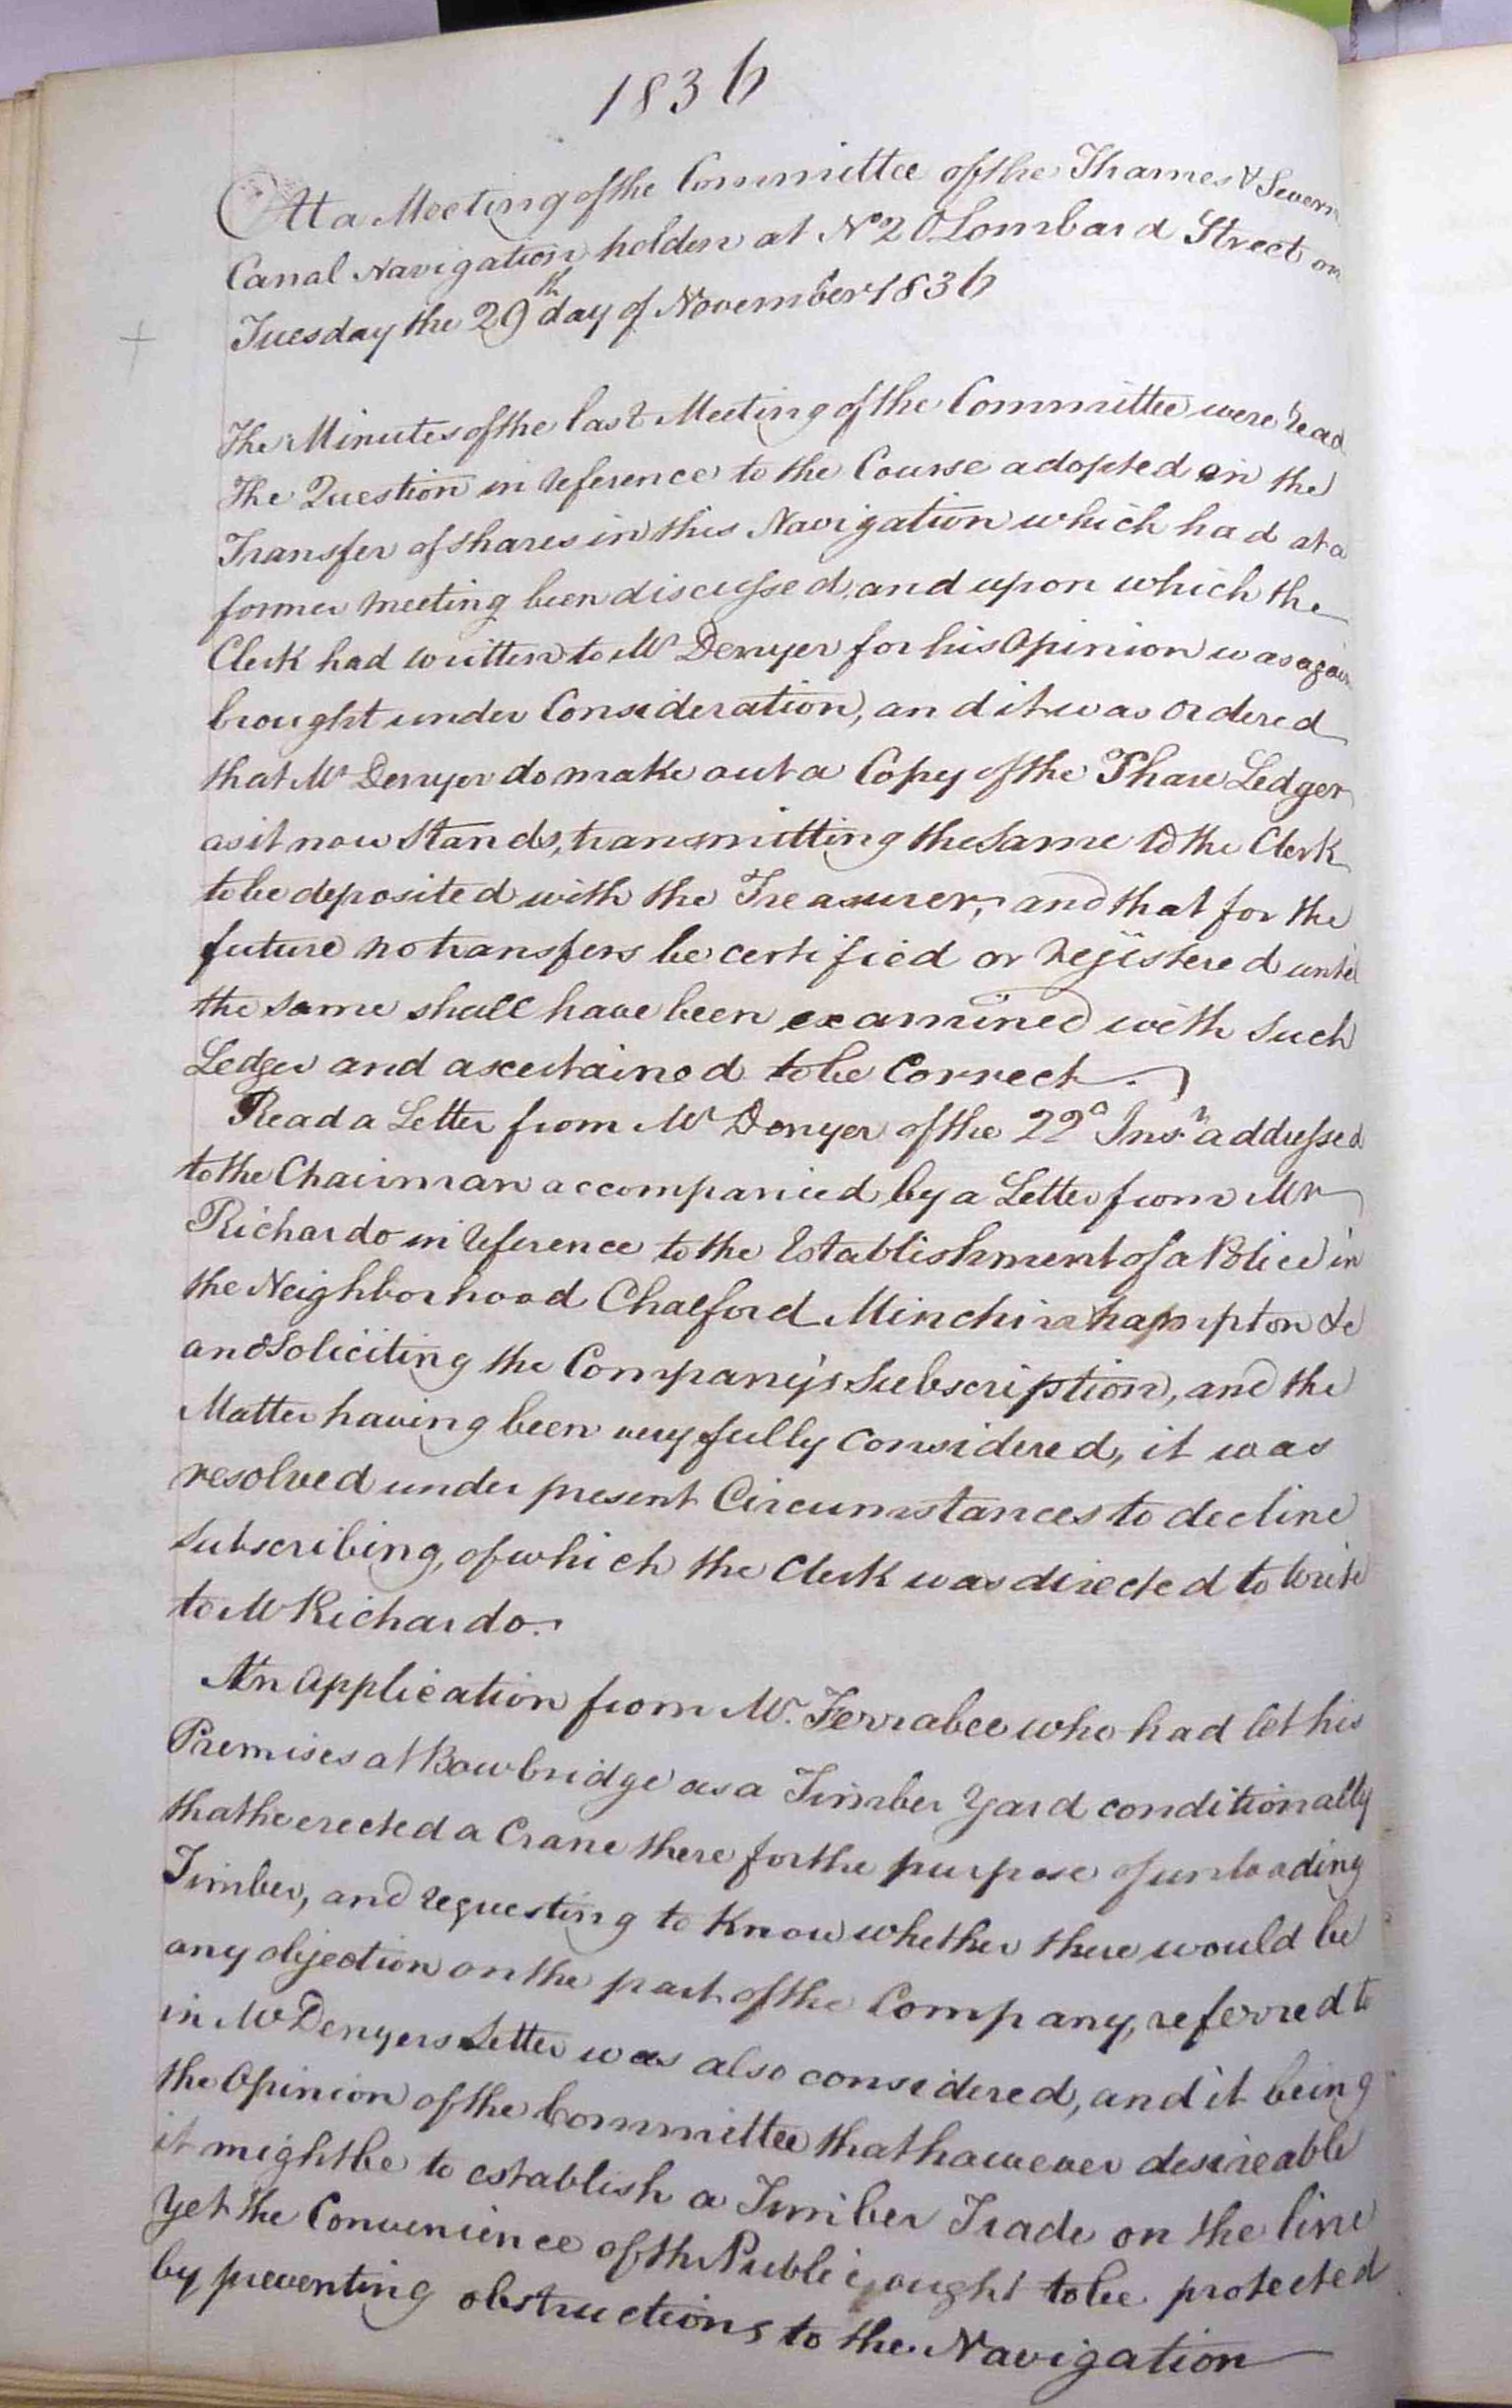 1836
At a Meeting of the Committee of the Thames & Severn
Canal Navigation holden at No 20 Lombard Street on
Tuesday the 29th day of November 1836
The Minutes of the last Meeting of the Committee were read
The Question in reference to the Course adopted in the
Transfer of shares in this Navigation which had at a
former meeting been discussed, and upon which the
Clerk had written to Mr Denyer for his Opinion was again
brought under Consideration, and it was ordered
that Mr Denyer do make out a Copy of the Share Ledger
as it now Stands, transmitting the same to the Clerk
to be deposited with the Treasurer, and that for the
future no transfers be certified or registered until
the same shall have been examined with such
Ledger and ascertained to be Correct.
Read a Letter from Mr Denyer of the 22d Inst addressed
to the Chairman accompanied by a Letter from Mr
Richardo in reference to the Establishment of a Police in
the Neighborhood Chalford Minchinhampton &c
and Soliciting the Company's Subscription, and the
Matter having been very fully Considered, it was
resolved under present Circumstances to decline
Subscribing, of which the Clerk was directed to write
to Mr Richardo.
An Application from Mr. Ferrabee who had let his
Premises at Bowbridge as a Timber Yard conditionally
that he erected a Crane there for the purpose of unloading
Timber, and requesting to Know whether there would be
any objection on the part of the Company, referred to
in Mr Denyers Letter was also considered, and it being
the Opinion of the Committee that however desireable
it might be to establish a Timber Trade on the line
yet the Convenience of the Public ought to be protected
by preventing obstructions to the Navigation